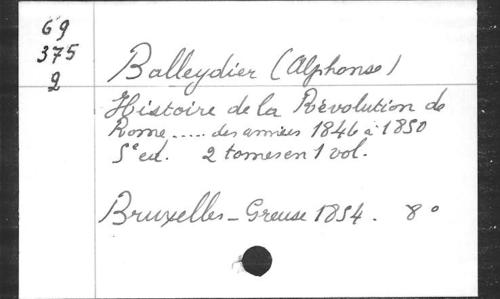 69
375
2
Balleydier (Alphonse)
Histoire de la Révolution de
Rome ..... des années 1846 à 1850
5e ed. 2 tomes en 1 vol.
Bruxelles - Greuse 1854. 8°